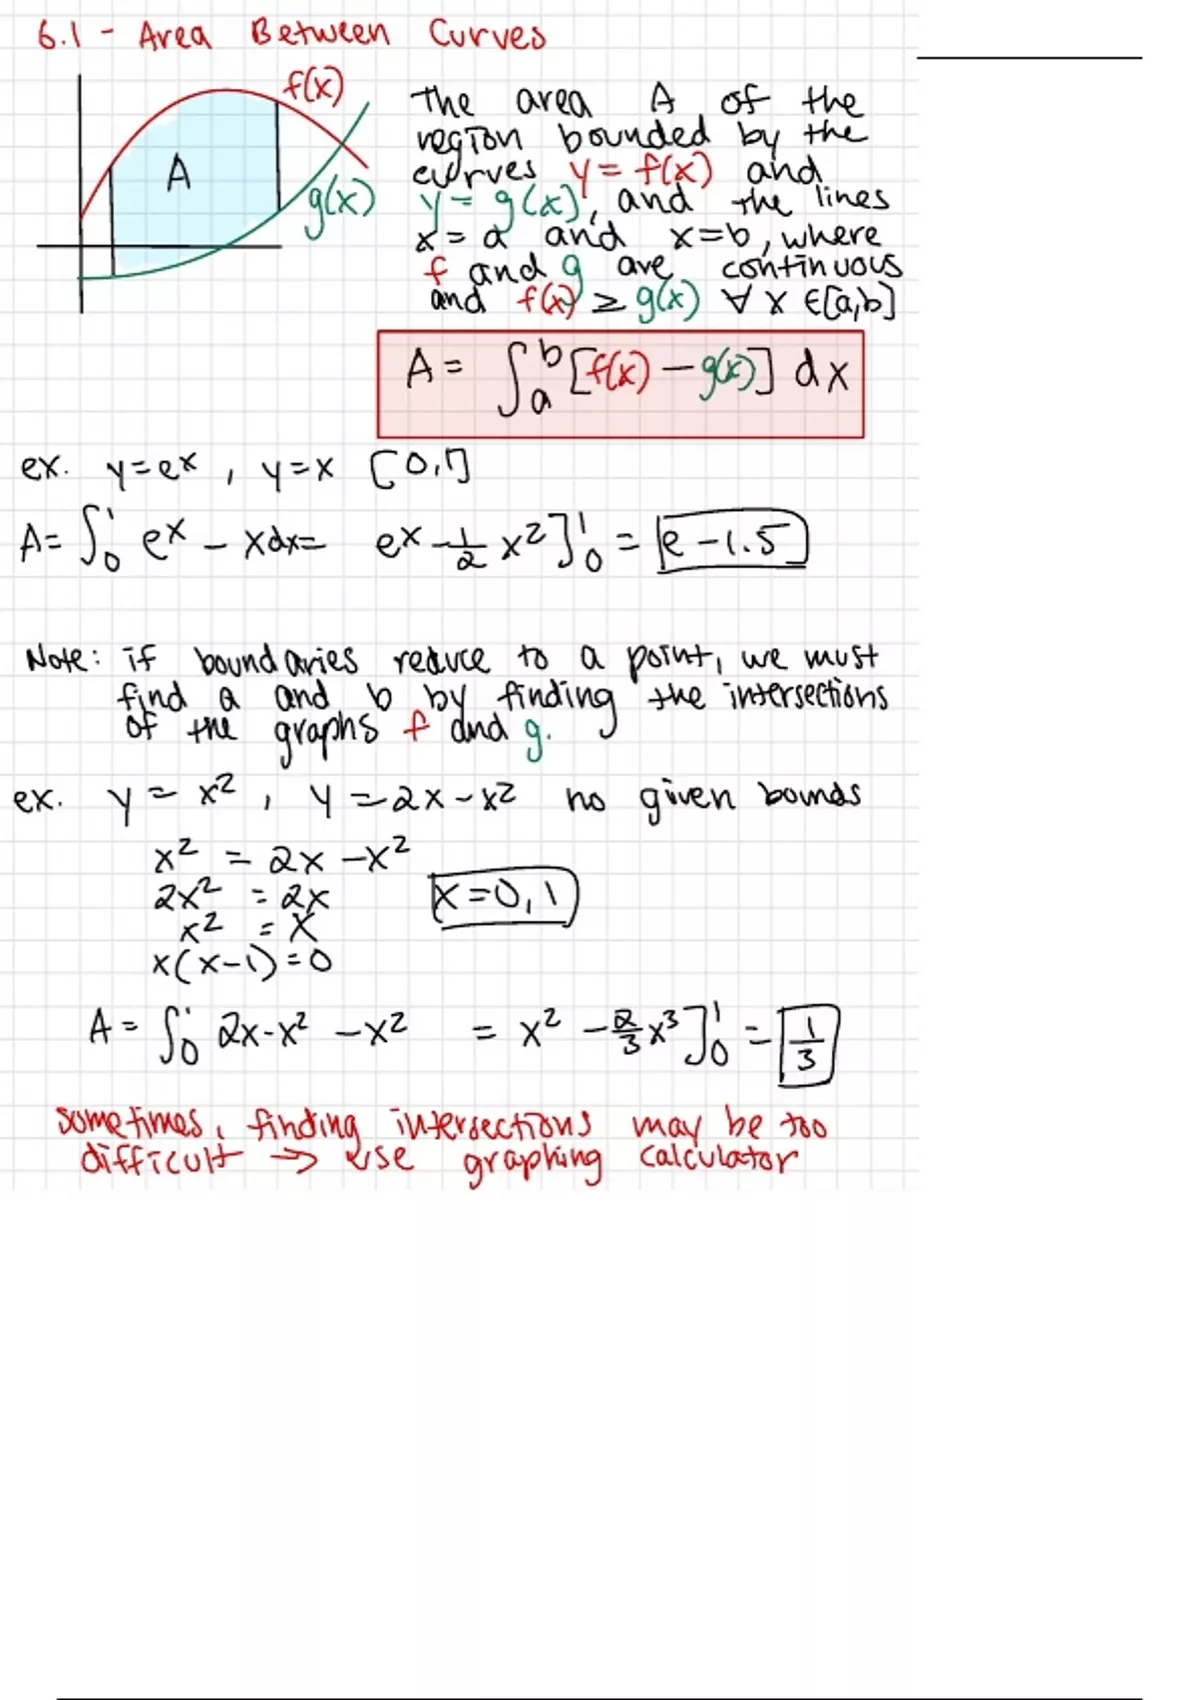 6.1 - Area Between Curves
f(x)
A
g(x)
The area A of the
region bounded by the
curves y = f(x) and
y = g(x), and the lines
x = a and x=b, where
f and g are continuous
and f(x) ≥ g(x) ∀ x ∈[a,b]
A = ∫_a^b [f(x) - g(x)] dx
ex. y=e^x, y=x [0,1]
A= ∫_0^1 e^x - xdx= e^x - 1/2 x^2]_0^1 = e - 1.5
Note: if boundaries reduce to a point, we must
find a and b by finding the intersections
of the graphs f and g.
ex. y = x^2, y = 2x - x^2 no given bounds
x^2 = 2x - x^2
2x^2 = 2x
x = 0, 1
x^2 = x
x(x-1)=0
A = ∫_0^1 2x-x^2 - x^2 = x^2 - 2/3 x^3]_0^1 = 1/3
sometimes, finding intersections may be too
difficult → use graphing calculator